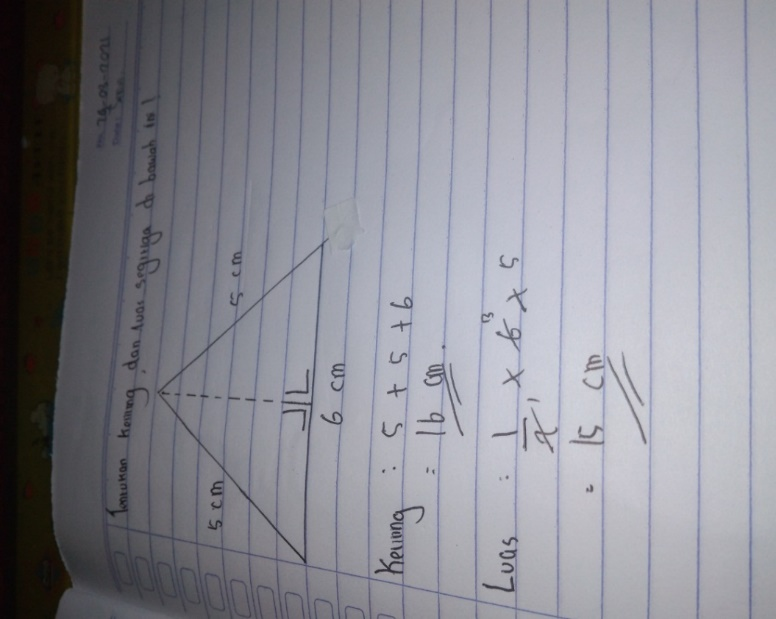 No. 24-03-2021
Date:
Tentukan keliling, dan luas segitiga di bawah ini!
5 cm
5 cm
6 cm
Keliling : 5 + 5 + 6
= 16 cm.
Luas : 1/2 1 x 6 3 x 5
= 15 cm